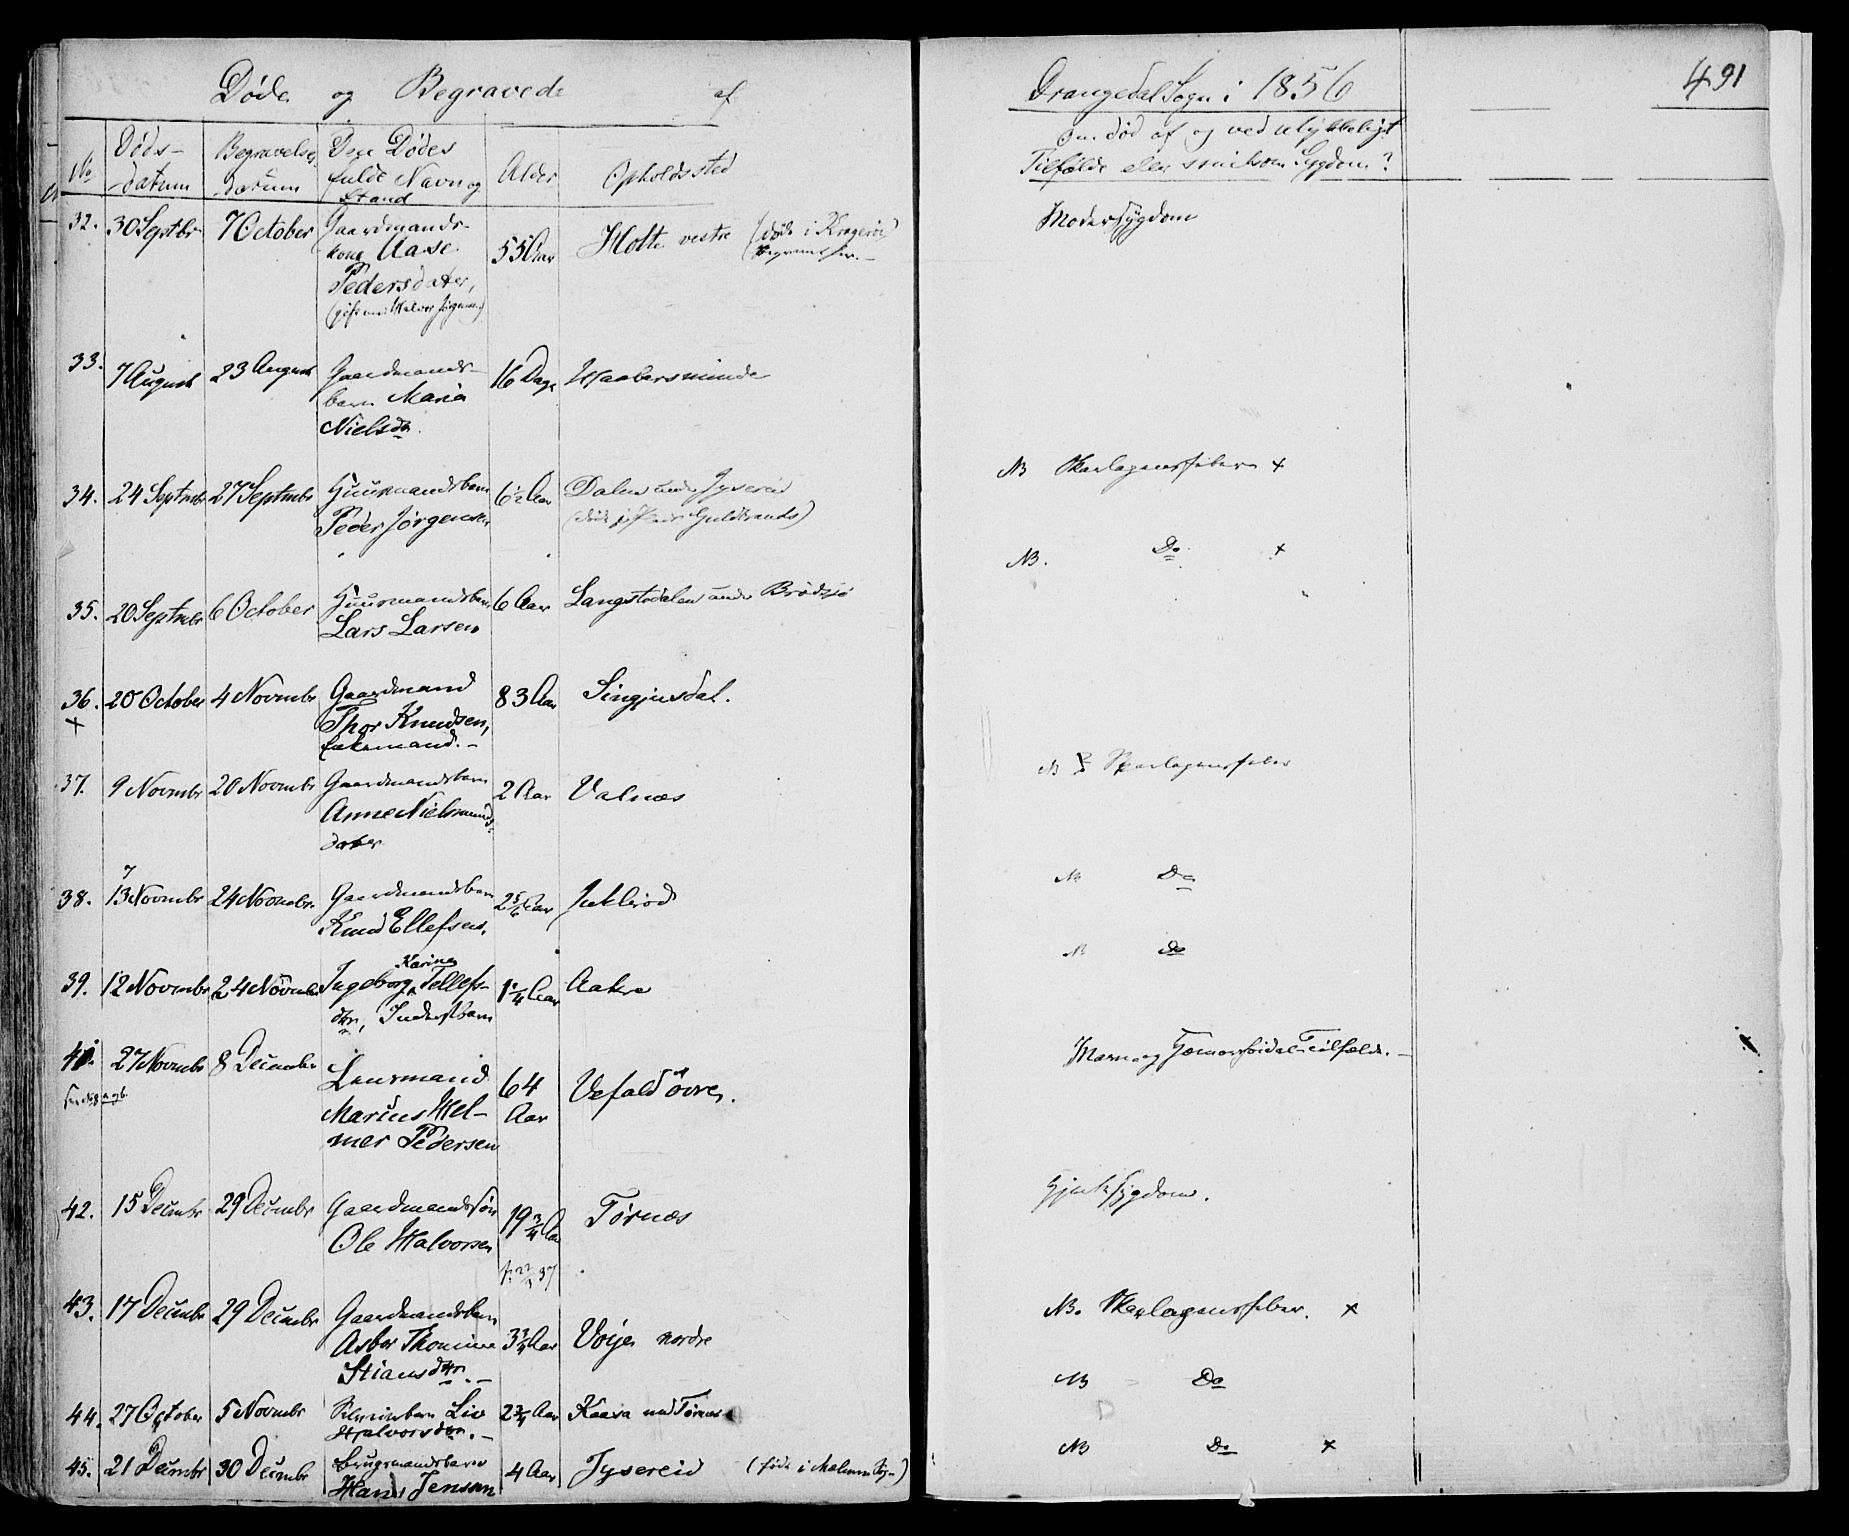 Døde og Begravede af Drangedal Sogn i 1856 491
No Døds-datum Begravelsesdatum Den Dødes fulde Navn og Stand Alder Opholdssted Om død af og ved ulykkeligt Tilfælde eller smitsom Sygdom?
32. 30 Septbr 7 October Gaardmandskone Aase Pedersdatter, 55 Aar Holte vestre (død i Kragerø) Modersygdom
33. 7 August 23 August Gaardmandsbarn Maria Nielsdtr. 16 Dage Haabersminde
34. 24 Septmbr 27 Septmbr Huusmandsbarn Peder Jørgensen 6½ Aar Dalen under Jysereid NB Skarlagensfeber +
35. 20 Septmbr 6 October Huusmandsbarn Lars Larsen 6 Aar Langstødalen under Brødsjø NB. Do +
36. + 20 October 4 Novmbr Gaardmand Thor Knudsen, Enkemand. - 83 Aar Singjusdal.
37. 9 Novmbr 20 Novmbr Gaardmandsbarn Anne Nielsmundsdatter 2 Aar Valnæs NB Skarlagensfeber
38. 7 13 Novmbr 24 Novmbr. Gaardmandsbarn Knud Ellefsen. 2 5/6 Aar NB Do
39. 12 Novmbr 24 Novmbr Ingeborg Karine Tellefsdtr, Inderstbarn 1¼ Aar Aakre NB Do
41. 27 Novmbr 8 Decmber Lensmand Marius Helmer Pedersen 64 Aar Vefald øvre. Mave og Hæmorhoidal Tilfælde. -
42. 15 Decmbr 29 Decmbr Gaardmandssøn Ole Halvorsen 19¾ Aar Tørnæs Gjertsygdom.
43. 17 Decmbr 29 Decmbr Gaardmandsbarn Asbør Thomine Stiansdtr. - 3¾ Aar Voje nordre NB. Skarlagensfeber. +
44. 27 October 5 Novmbr Liv Halvorsdtr. - 2¾ Aar Kaasa und Tørnæs NB Do
45. 21 Decmbr 30 Decmbr Brugsmandsbarn Hans Jensen 4 Aar Jysereid NB Do +